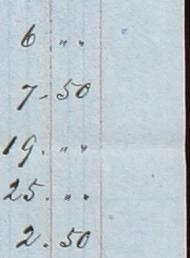 6 " "
7. 50
19. " "
25. " "
2. 50